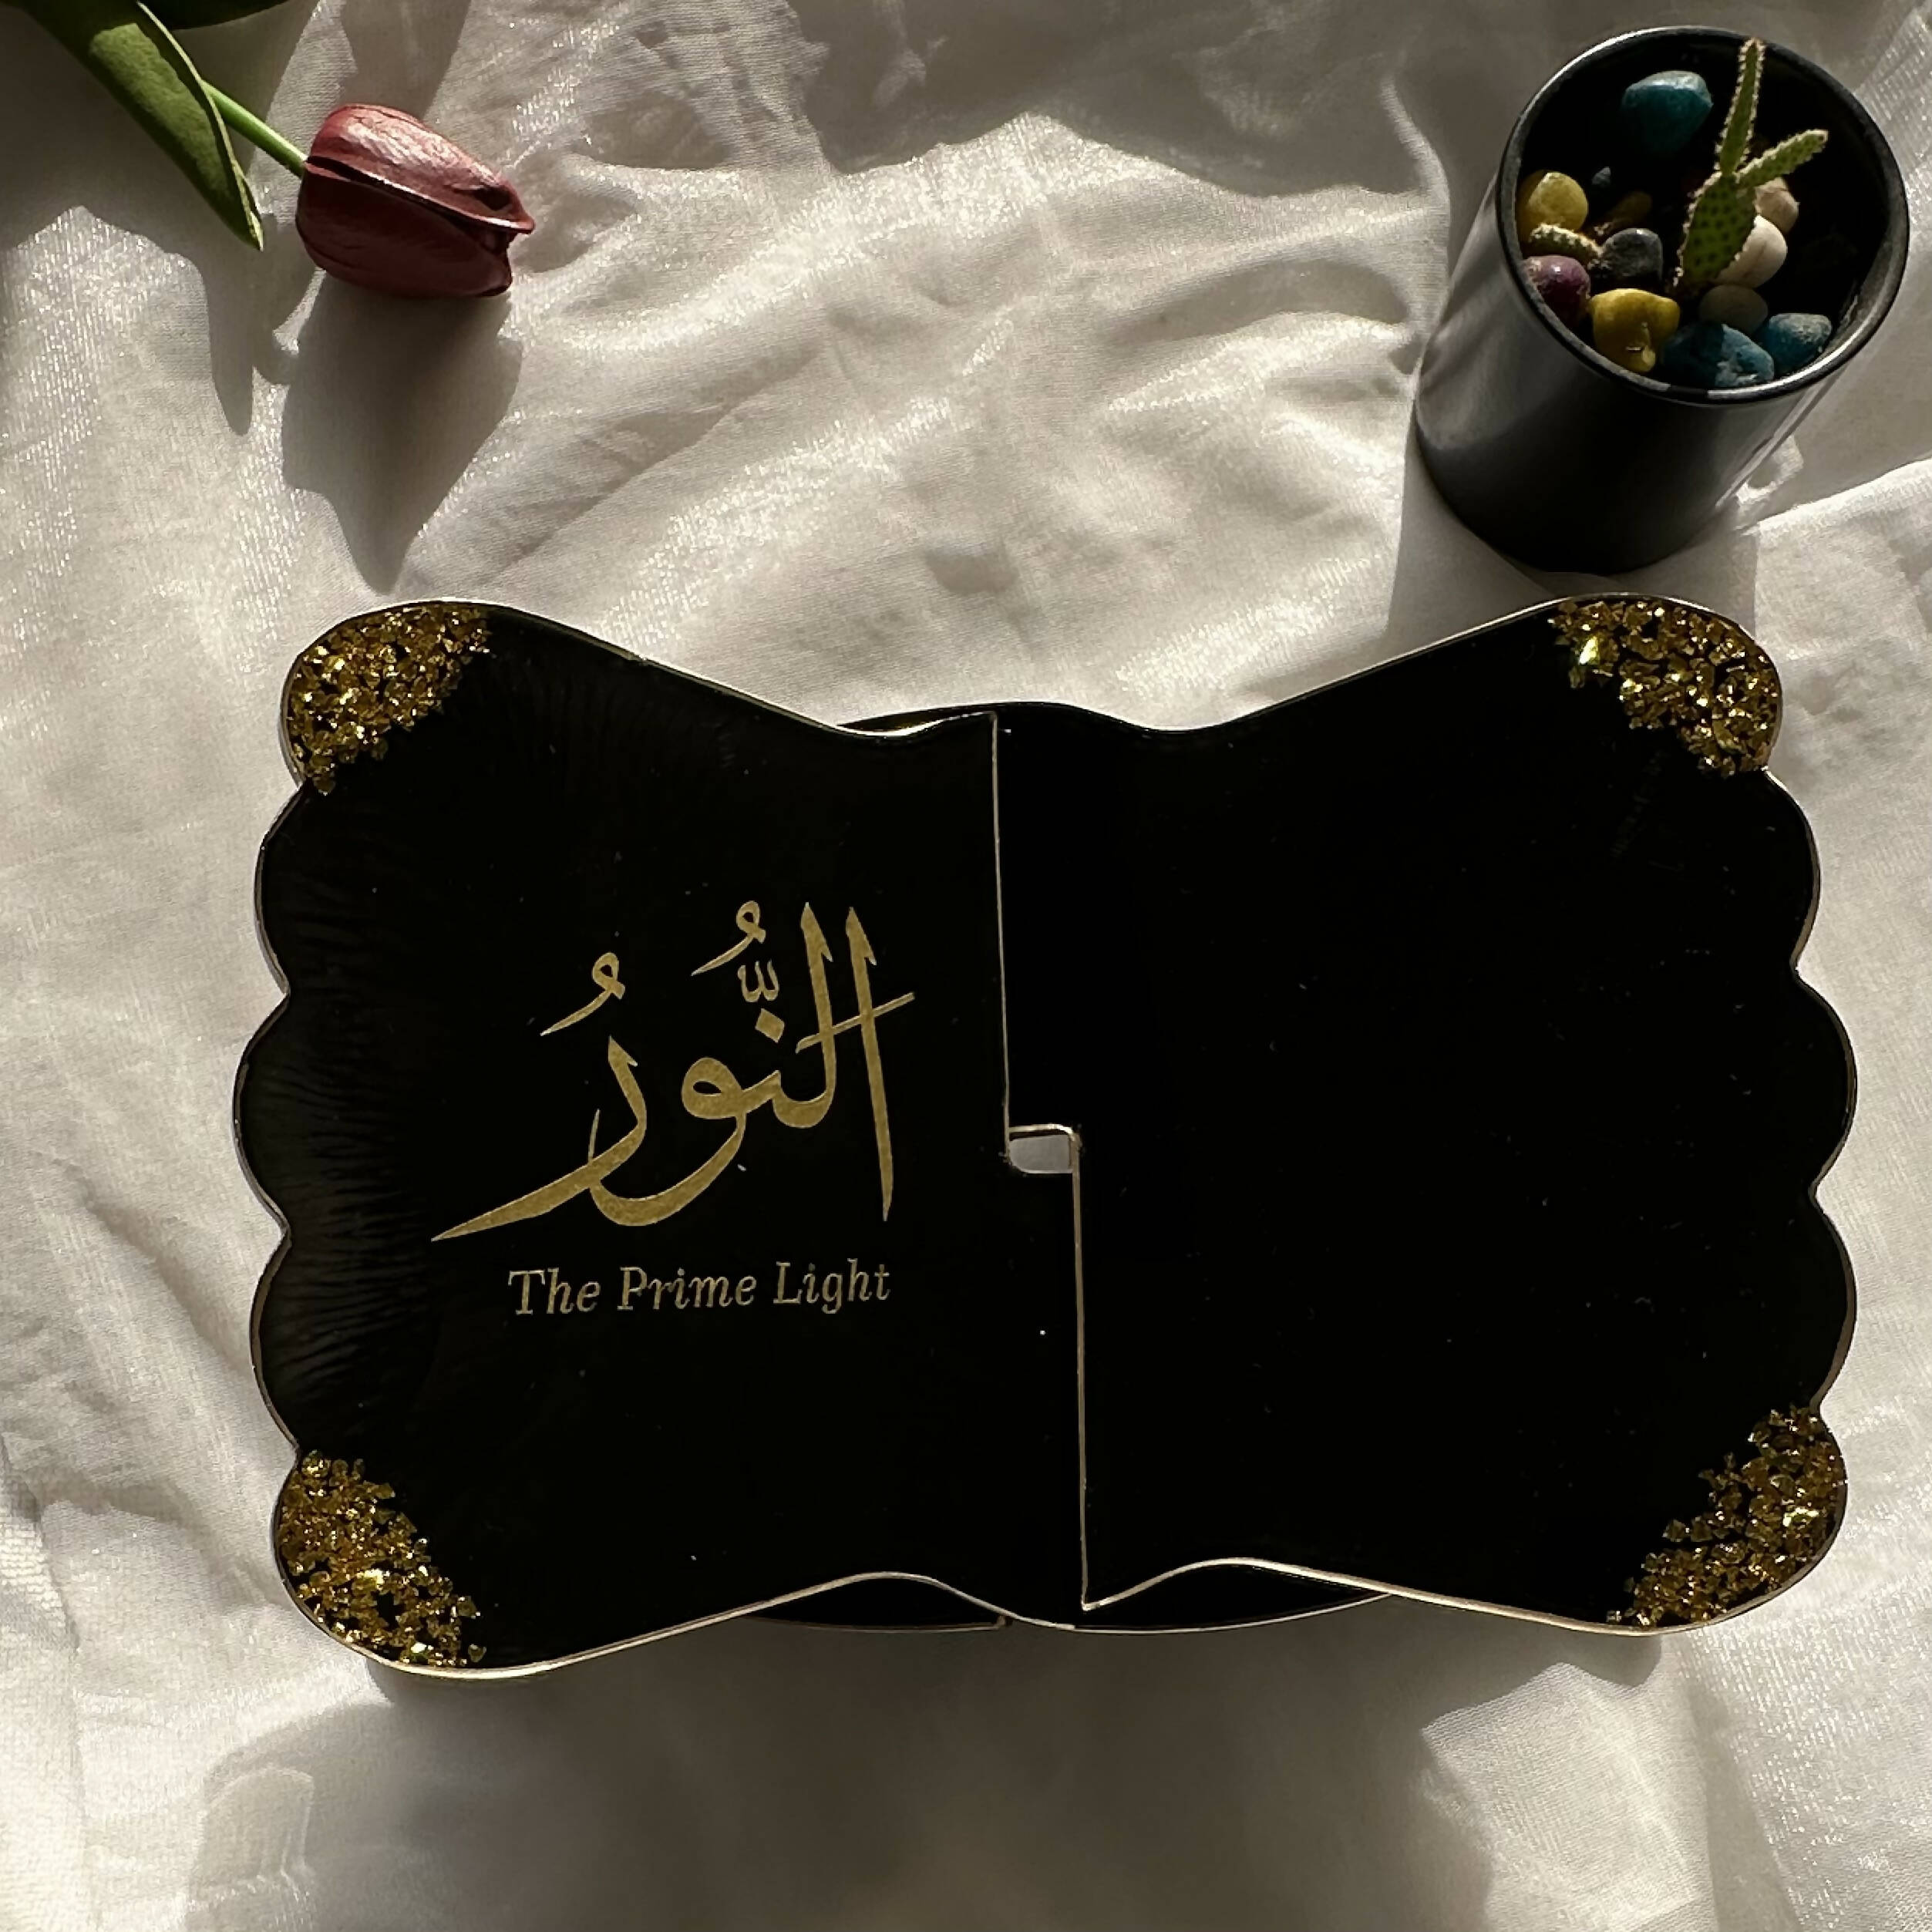 النُّورُ
The Prime Light